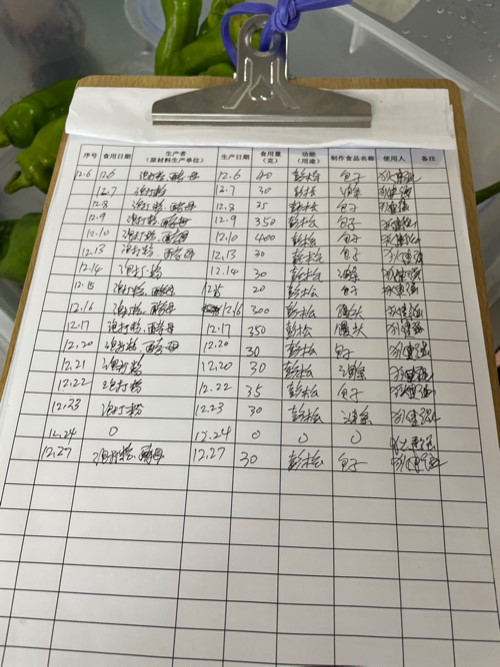 序号 食用日期 生产者 (原材料生产单位) 生产日期 食用量 (克) 功能 (用途) 制作食品名称 使用人 备注
12.6 12.6 泡打粉.酵母 12.6 40 彭松 包子
12.7 泡打粉 12.7 30 彭松 油条
12.8 泡打粉.酵母 12.8 25 彭松 包子
12.9 泡打粉.酵母 12.9 350 彭松 包子
12.10 泡打粉.酵母 12.10 400 彭松 包子
12.13 泡打粉.酵母 12.13 30 彭松 包子
12.14 泡打粉 12.14 30 彭松 油条
12.15 泡打粉.酵母 20 彭松 包子
12.16 泡打粉.酵母 12.16 300 彭松 馒头
12.17 泡打粉.酵母 12.17 350 彭松 馒头
12.20 泡打粉.酵母 12.20 30 彭松 包子
12.21 泡打粉 12.20 30 彭松 油条
12.22 泡打粉 12.22 35 彭松 包子
12.23 泡打粉 12.23 30 彭松 油条
12.24 0 12.24 0 0 0
12.27 泡打粉.酵母 12.27 30 彭松 包子